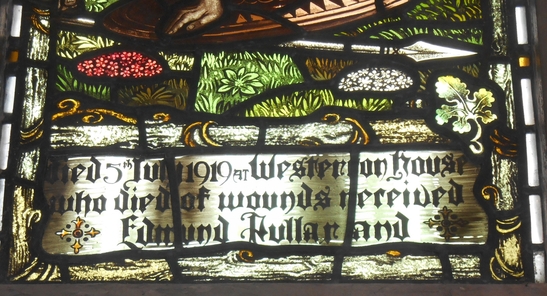 died 5th July 1919 AT Westerton House
who died of wounds received
Edmund Pullar and